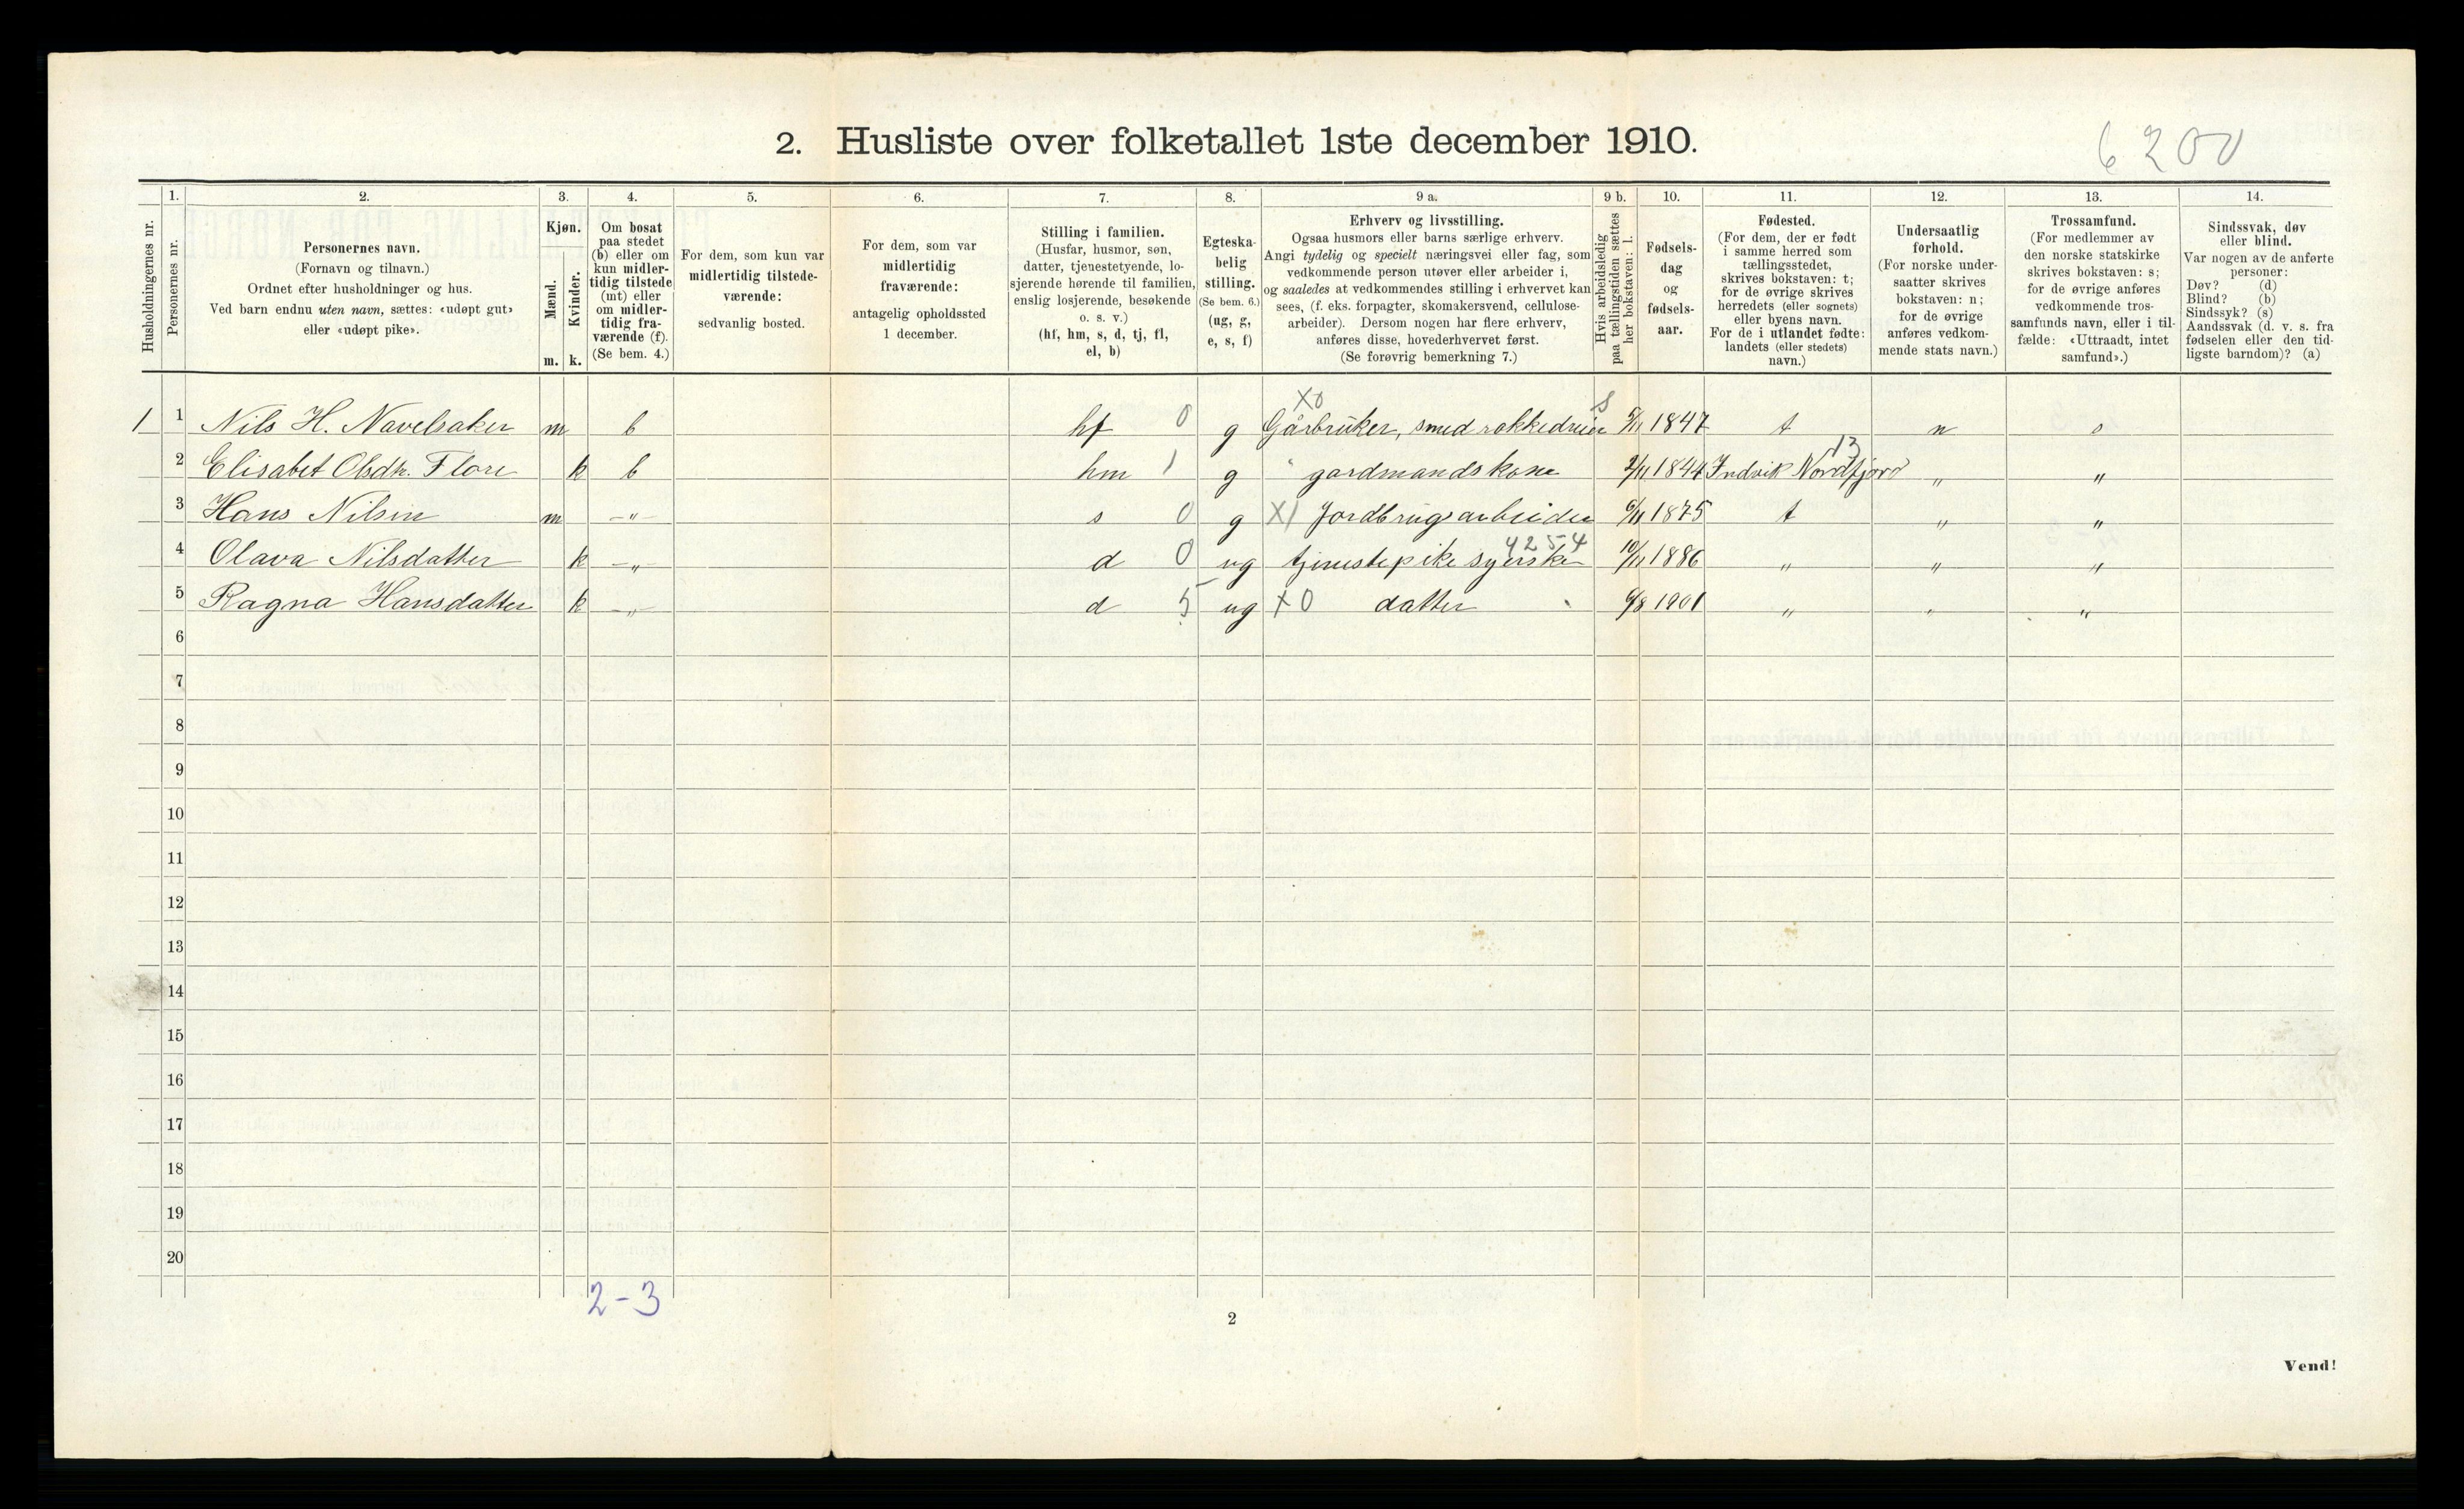 2. Husliste over folketallet 1ste december 1910.
6200
1. 2. 3. 4. 5. 6. 7. 8. 9 a. 9 b. 10. 11. 12. 13. 14.
Husholdningernes nr.
Personernes nr.
Personernes navn.
(Fornavn og tilnavn.)
Ordnet efter husholdninger og hus.
Ved barn endnu uten navn, sættes: «udøpt gut»
eller «udøpt pike».
Kjøn.
Mænd.
m.
Kvinder.
k.
Om bosat
paa stedet
(b) eller om
kun midler-
tidig tilstede
(mt) eller
om midler-
tidig fra-
værende (f).
(Se bem. 4.)
For dem, som kun var
midlertidig tilstede-
værende:
sedvanlig bosted.
For dem, som var
midlertidig
fraværende:
antagelig opholdssted
1 december.
Stilling i familien.
(Husfar, husmor, søn,
datter, tjenestetyende, lo-
sjerende hørende til familien,
enslig losjerende, besøkende
o. s. v.)
(hf, hm, s, d, tj, fl,
el, b)
Egteska-
belig
stilling.
(Se bem. 6.)
(ug, g,
e, s, f)
Erhverv og livsstilling.
Ogsaa husmors eller barns særlige erhverv.
Angi tydelig og specielt næringsvei eller fag, som
vedkommende person utøver eller arbeider i,
og saaledes at vedkommendes stilling i erhvervet kan
sees, (f. eks. forpagter, skomakersvend, cellulose-
arbeider). Dersom nogen har flere erhverv,
anføres disse, hovederhvervet først.
(Se forøvrig bemerkning 7.)
Hvis arbeidsledig
paa tællingstiden sættes
her bokstaven: l.
Fødsels-
dag
og
fødsels-
aar.
Fødested.
(For dem, der er født
i samme herred som
tællingsstedet,
skrives bokstaven: t;
for de øvrige skrives
herredets (eller sognets)
eller byens navn.
For de i utlandet fødte:
landets (eller stedets)
navn.)
Undersaatlig
forhold.
(For norske under-
saatter skrives
bokstaven: n;
for de øvrige
anføres vedkom-
mende stats navn.)
Trossamfund.
(For medlemmer av
den norske statskirke
skrives bokstaven: s;
for de øvrige anføres
vedkommende tros-
samfunds navn, eller i til-
fælde: «Uttraadt, intet
samfund».)
Sindssvak, døv
eller blind.
Var nogen av de anførte
personer:
Døv? (d)
Blind? (b)
Sindssyk? (s)
Aandssvak (d. v. s. fra
fødselen eller den tid-
ligste barndom)? (a)
X0 s
1 1 Nils H. Navelsaker m b hf 0 g Gårbruker, smed rokkedreier 5/11 1847 t n s
13
2 Elisabet Olsdtr. Flore k b hm 1 g gardmandskone 2/11 1844 Indvik Nordfjord " "
3 Hans Nilsin m -"- s 0 g X1 Jordbrugsarbeider 6/11 1875 t " "
4254
4 Olava Nilsdatter k -"- d 0 ug tjenestepike syerske 10/11 1886 " " "
5 Ragna Hansdatter k -"- d 5 ug X0 datter 6/8 1901 " " "
6
7
8
9
10
11
12
13
14
15
16
17
18
19
20
2-3
2
Vend!